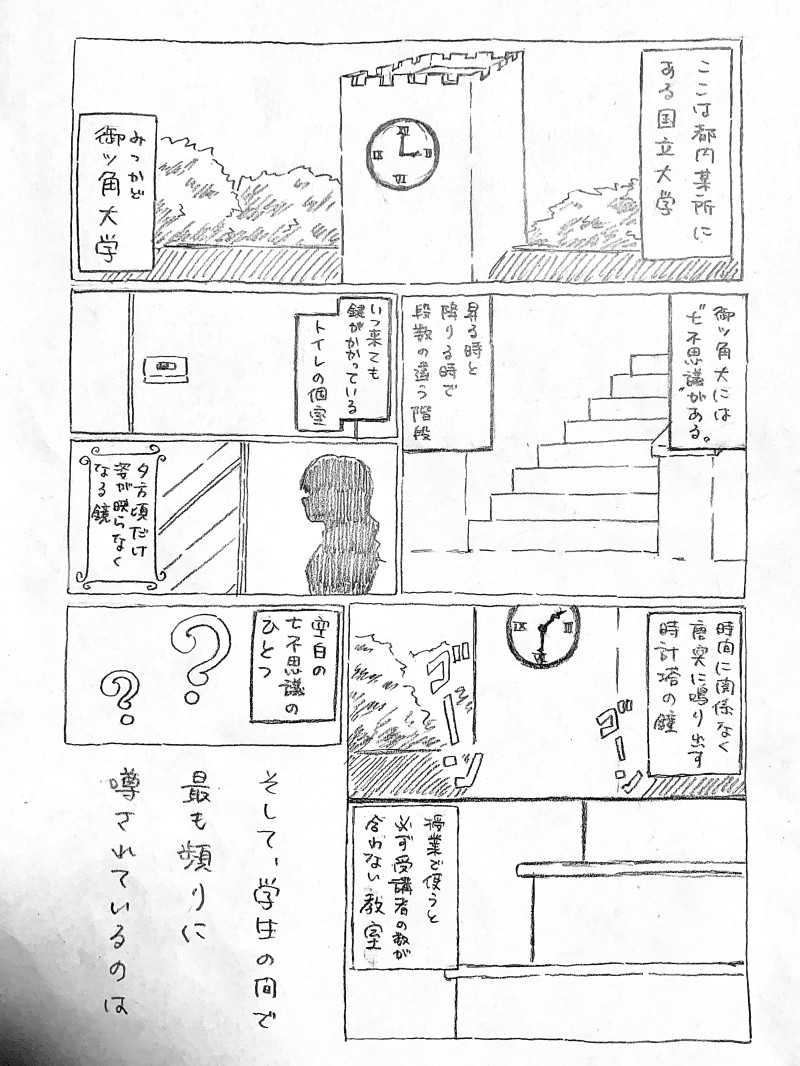 ここは都内某所に
ある国立大学
みつかど
御ッ角大学
XII
III
VI
IX
御ッ角大には
"七不思議"がある。
昇る時と
降りる時で
段数の違う階段
いつ来ても
鍵がかかっている
トイレの個室
夕方頃だけ
姿が映らなく
なる鏡
時間に関係なく
唐突に鳴り出す
時計塔の鐘
IX
III
VI
ゴーン
ゴーン
空白の
七不思議の
ひとつ
?
?
授業で使うと
必ず受講者の数が
合わない教室
そして、学生の間で
最も頻りに
噂されているのは